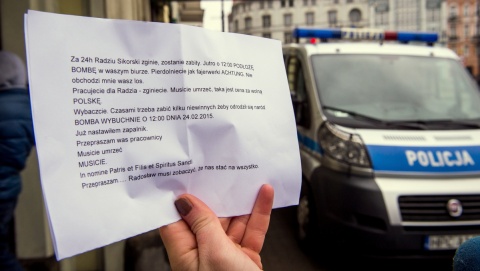 Za 24h Radziu Sikorski zginie, zostanie zabity. Jutro o 12:00 PODŁOŻĘ
BOMBĘ w waszym biurze. Pierdolniecie jak fajerwerki ACHTUNG. Nie
obchodzi mnie wasz los.
Pracujecie dla Radzia - zginiecie. Musicie umrzeć, taka jest cena za wolną
POLSKĘ.
Wybaczcie. Czasami trzeba zabić kilku niewinnych żeby odrodził się naród
BOMBA WYBUCHNIE O 12:00 DNIA 24.02.2015.
Już nastawiłem zapalnik.
Przepraszam was pracownicy
Musicie umrzeć
MUSICIE.
In nomine Patris et Filia et Spiritus Sancti
Przepraszam ... Radosław musi zobaczyć, że nas stać na wszystko.
POLICJA